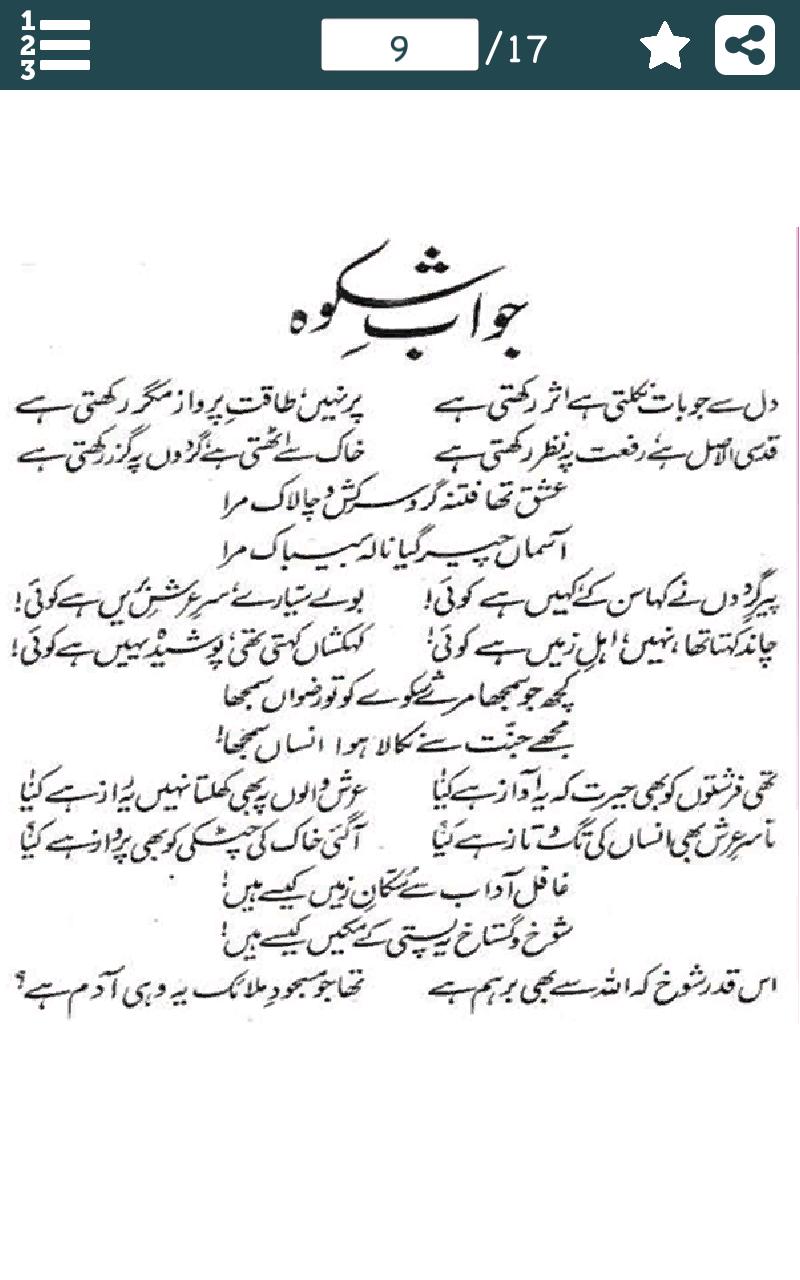 1
2
3
9 /17
جوابِ شکوہ
دل سے جو بات نکلتی ہے اثر رکھتی ہے پر نہیں، طاقتِ پرواز مگر رکھتی ہے
قدسی الاصل ہے، رفعت پہ نظر رکھتی ہے خاک سے اُٹھتی ہے، گردُوں پہ گزر رکھتی ہے
عشق تھا فتنہ گر و سرکش و چالاک مرا
آسماں چیر گیا نالۂ بیباک مرا
پیرِ گردُوں نے کہا سن کے، کہیں ہے کوئی! بولے سیّارے، سرِ عرشِ بریں ہے کوئی!
چاند کہتا تھا، نہیں، اہلِ زمیں ہے کوئی! کہکشاں کہتی تھی، پوشیدہ یہیں ہے کوئی!
کچھ جو سمجھا مرے شکوے کو تو رضواں سمجھا
مجھے جنّت سے نکالا ہوا انساں سمجھا!
تھی فرشتوں کو بھی حیرت کہ یہ آواز ہے کیا! عرش والوں پہ بھی کھلتا نہیں یہ راز ہے کیا!
تا سرِ عرش بھی انساں کی تگ و تاز ہے کیا؟ آگئی خاک کی چٹکی کو بھی پرواز ہے کیا؟
غافل آداب سے سُکّانِ زمیں کیسے ہیں!
شوخ و گستاخ یہ پستی کے مکیں کیسے ہیں!
اس قدر شوخ کہ اللہ سے بھی برہم ہے تھا جو مسجودِ ملائک یہ وہی آدم ہے؟